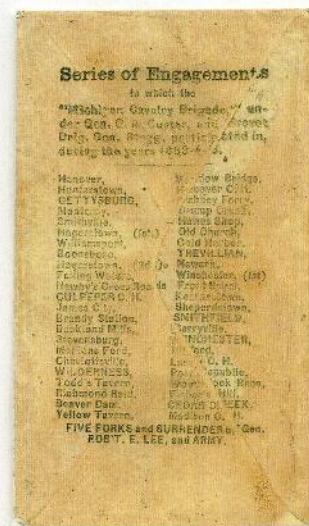 Series of Engagements
in which the
"Michigan Cavalry Brigade," un-
der Gen. G. A. Custer, and Brevet
Brig. Gen. Stagg, participated in,
during the years 1863-4-5.
Hanover,
Hunterstown,
GETTYSBURG,
Monterey,
Smithville,
Hagerstown, (1st.)
Williamsport,
Boonsboro,
Hagerstown, (2d.)
Falling Waters,
Newby's Cross Roads
CULPEPER C. H.
James City,
Brandy Station,
Buckland Mills,
Stevensburg,
Mortons Ford,
Charlottsville,
WILDERNESS,
Todd's Tavern,
Richmond Raid,
Beaver Dam,
Yellow Tavern,
Meadow Bridge,
Hanover C. H.
Ferry,
Hawes Shop,
Old Church,
Cold Harbor,
TREVILLIAN,
Newark,
Winchester, (1st)
Front Royal,
Kearneystown,
Shepherdstown,
SMITHFIELD,
Berryville,
WINCHESTER,
Luray C. H.
Port Republic,
Hill,
CEDAR CREEK,
Madison C. H.
FIVE FORKS and SURRENDER of Gen.
ROB'T. E. LEE, and ARMY.